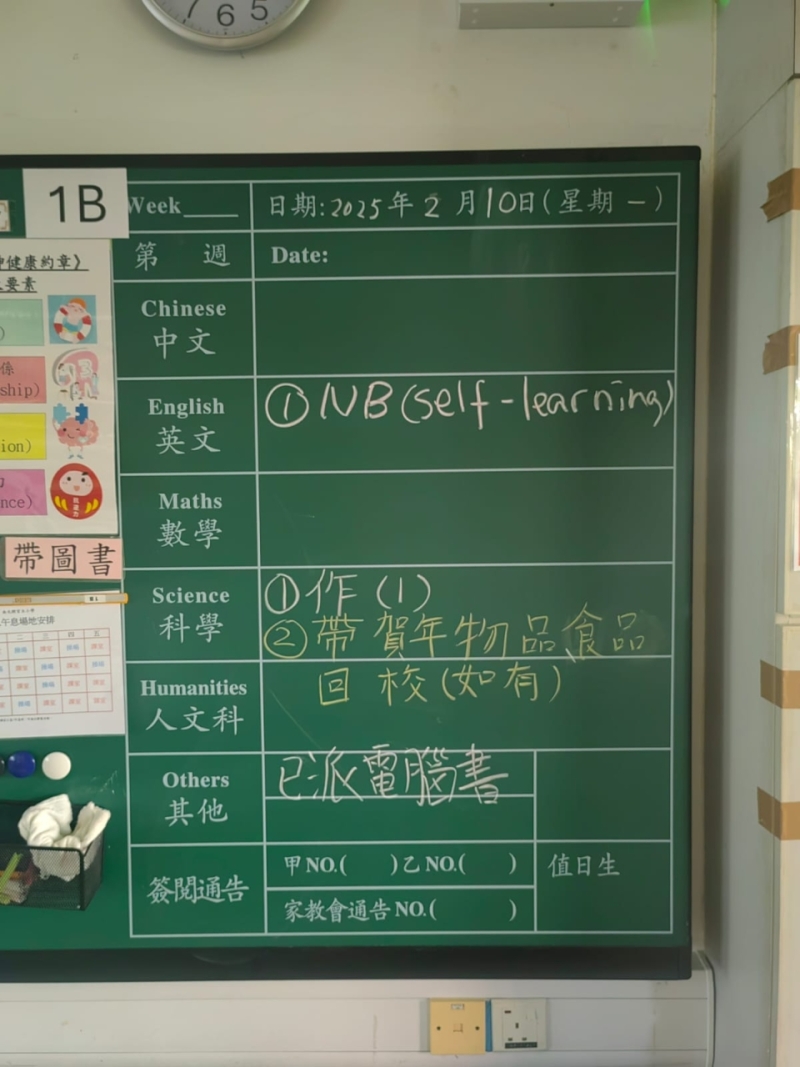 7 6 5
1B
Week____ 日期:2025年2月10日(星期一)
第 週 Date:
健康約章》
要素
Chinese
中文
English
英文
①NB(self-learning)
係
ship)
ion)
nce)
Maths
數學
帶圖書
Science
科學
①作(1)
②帶賀年物品食品
回校(如有)
午息場地安排
Humanities
人文科
Others
其他
已派電腦書
簽閱通告
甲NO.( )乙NO.( )
值日生
家教會通告NO.( )